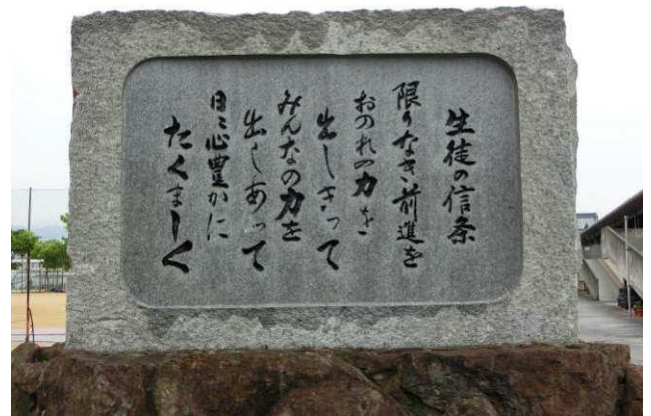 生徒の信条
限りなき前進を
おのれの力を
出しきって
みんなの力を
出しあって
日々心豊かに
たくましく